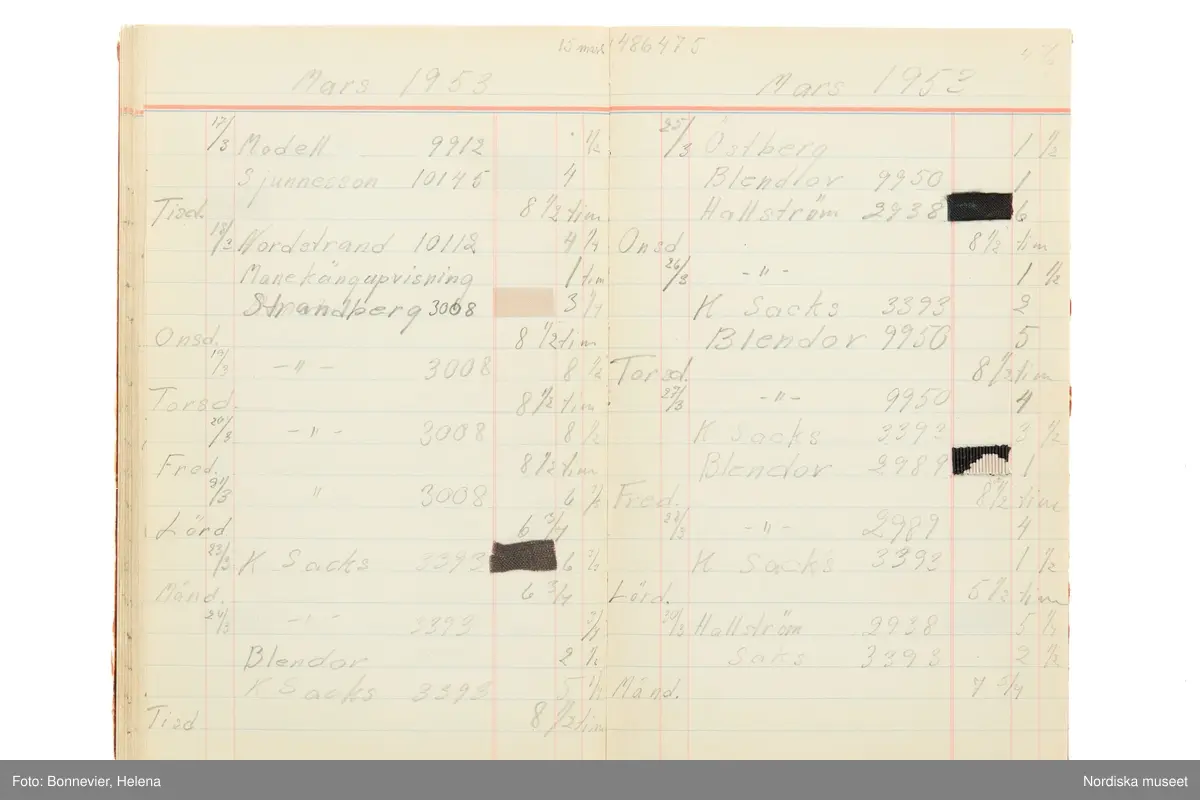 15 mars 486475
Mars 1953
17/3 Modell 9912 1/2
Sjunnesson 10145 4
Tisd. 8 1/2 tim
18/3 Nordstrand 10112 4 1/4
Manekänguppvisning 1 tim
Strandberg 3008 3 1/4
Onsd. 8 1/2 tim
19/3 -"- 3008 8 1/2
Torsd. 8 1/2 tim
20/3 -"- 3008 8 1/2
Fred. 8 1/2 tim
21/3 " 3008 6
Lörd. 6 3/4
23/3 K Sacks 3393 6
Månd. 6 3/4
24/3 -"- 3393 3/4
Blendor 2
K Sacks 3393 5
Tisd 8 1/2 tim
Mars 1953
25/3 Östberg 1 1/2
Blendor 9950 1
Hallström 2938 6
Onsd 8 1/2 tim
26/3 -"- 1 1/2
K Sacks 3393 2
Blendor 9950 5
Torsd. 8 1/2 tim
27/3 -"- 9950 4
K Sacks 3393 3 1/2
Blendor 2989 1
Fred. 8 1/2 tim
-"- 2989 4
K Sacks 3393 1 1/2
Lörd. 5 1/2 tim
Hallström 2938 5
Saks 3393 2
Månd. 7
Foto: Bonnevier, Helena
Nordiska museet